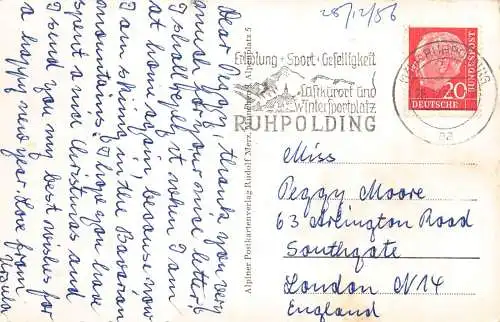 28/12/56
Dear Peggy, thank you very
much for your nice letter.
I shall reply it when I am
home again, because now
I am skiing in the Bavarian
mountains. I hope you have
spent a nice Christmas and
I send you my best wishes for
a happy new year. Love from
Ursula
Erholung · Sport · Geselligkeit
Luftkurort und
Wintersportplatz
RUHPOLDING
DEUTSCHE
BUNDESPOST
20
Alpiner Postkartenverlag Rudolf Merz, München, Alpenplatz 5
Miss
Peggy Moore
63 Arlington Road
Southgate
London N14
England